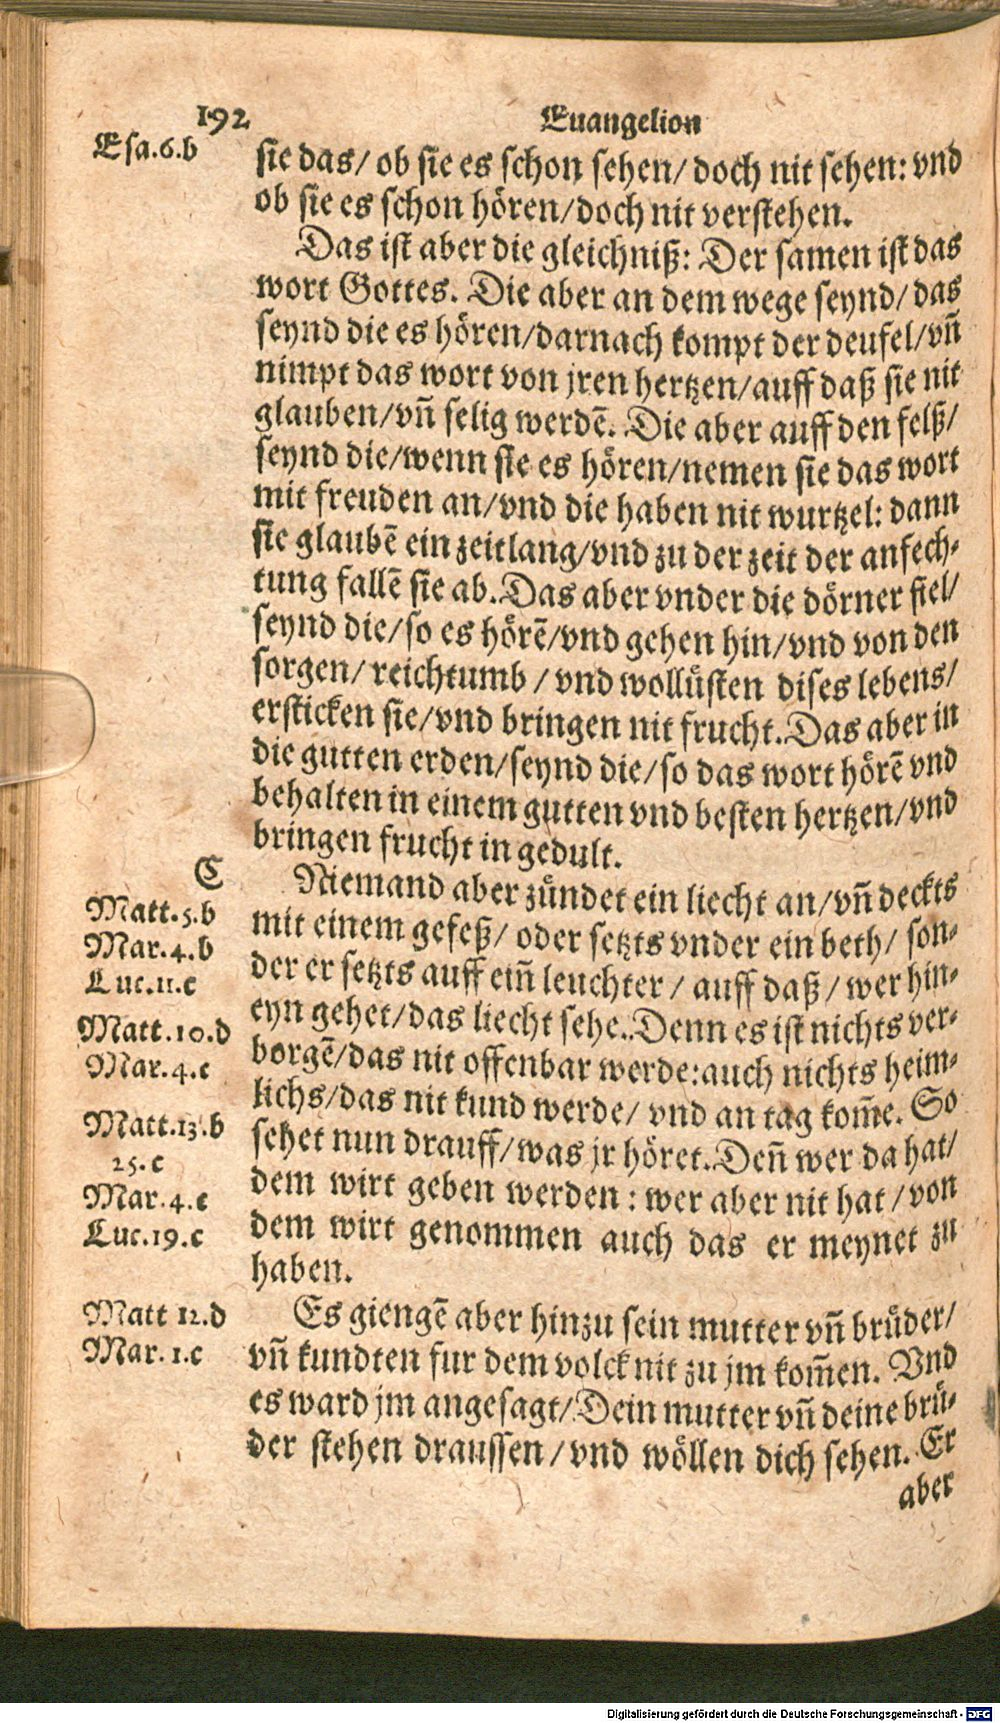 192
Euangelion
Esa.6.b
sie das/ ob sie es schon sehen/ doch nit sehen: vnd
ob sie es schon hören/doch nit verstehen.
Das ist aber die gleichniß: Der samen ist das
wort Gottes. Die aber an dem wege seynd/ das
seynd die es hören/darnach kompt der deufel/vñ
nimpt das wort von jren hertzen/auff daß sie nit
glauben/vñ selig werdẽ. Die aber auff den felß/
seynd die/wenn sie es hören/nemen sie das wort
mit freuden an/vnd die haben nit wurtzel: dann
sie glaubẽ ein zeitlang/vnd zu der zeit der anfech-
tung fallẽ sie ab. Das aber vnder die dörner fiel/
seynd die/so es hörẽ/vnd gehen hin/vnd von den
sorgen/ reichtumb / vnd wollüsten dises lebens/
ersticken sie/vnd bringen nit frucht. Das aber in
die gutten erden/seynd die/so das wort hörẽ vnd
behalten in einem gutten vnd besten hertzen/vnd
bringen frucht in gedult.
C
Niemand aber zündet ein liecht an/vñ deckts
Matt.5.b
mit einem gefeß/ oder setzts vnder ein beth/ son-
Mar.4.b
der er setzts auff eiñ leuchter / auff daß / wer hin-
Luc.11.c
eyn gehet/das liecht sehe. Denn es ist nichts ver-
Matt.10.d
borgẽ/das nit offenbar werde: auch nichts heim-
Mar.4.c
lichs/das nit kund werde/ vnd an tag kom̃e. So
Matt.13.b
sehet nun drauff/was jr höret. Deñ wer da hat/
25.c
dem wirt geben werden: wer aber nit hat / von
Mar.4.c
dem wirt genommen auch das er meynet zu
Luc.19.c
haben.
Matt 12.d
Es giengẽ aber hinzu sein mutter vñ brüder/
Mar.1.c
vñ kundten fur dem volck nit zu jm kom̃en. Vnd
es ward jm angesagt/Dein mutter vñ deine brü-
der stehen draussen/vnd wöllen dich sehen. Er
aber
Digitalisierung gefördert durch die Deutsche Forschungsgemeinschaft - DFG